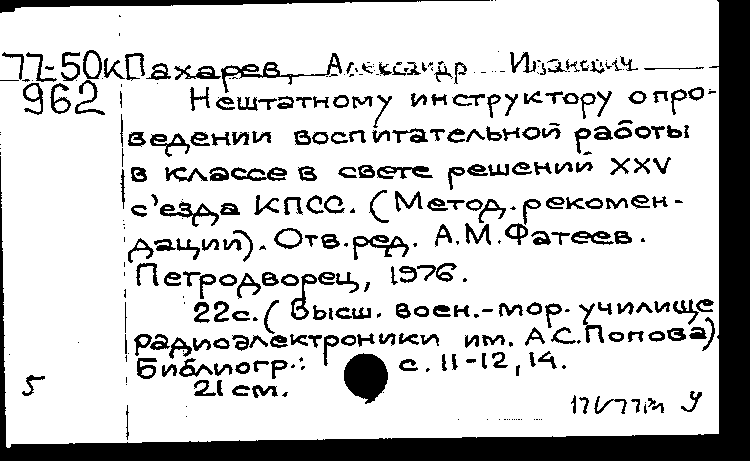 77-50к Пахарев, Александр Иванович
962 Нештатному инструктору о про-
ведении воспитательной работы
в классе в свете решений XXV
с'езда КПСС. (Метод. рекомен-
дации). Отв. ред. А.М.Фатеев.
Петродворец, 1976.
22с. (Высш. воен.-мор. училище
радиоэлектроники им. А.С.Попова).
Библиогр.: с. 11-12, 14.
5 21 см.